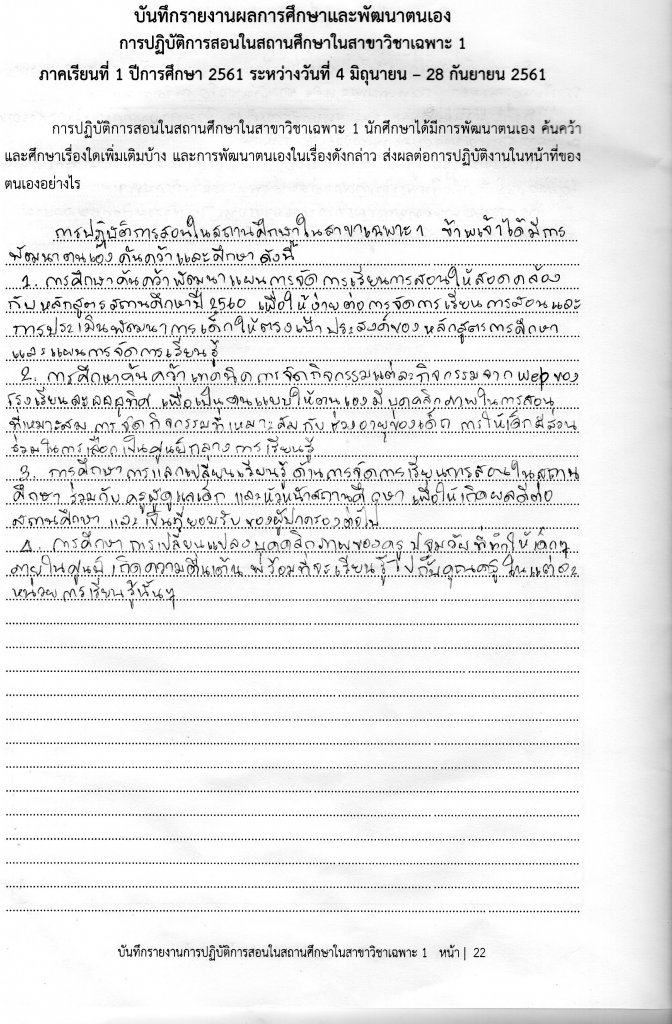 บันทึกรายงานผลการศึกษาและพัฒนาตนเอง
การปฏิบัติการสอนในสถานศึกษาในสาขาวิชาเฉพาะ 1
ภาคเรียนที่ 1 ปีการศึกษา 2561 ระหว่างวันที่ 4 มิถุนายน – 28 กันยายน 2561
การปฏิบัติการสอนในสถานศึกษาในสาขาวิชาเฉพาะ 1 นักศึกษาได้มีการพัฒนาตนเอง ค้นคว้า
และศึกษาเรื่องใดเพิ่มเติมบ้าง และการพัฒนาตนเองในเรื่องดังกล่าว ส่งผลต่อการปฏิบัติงานในหน้าที่ของ
ตนเองอย่างไร
การปฏิบัติการสอนในสถานศึกษาในสาขาเฉพาะ 1 ข้าพเจ้าได้มีการ
พัฒนาตนเอง ค้นคว้าและศึกษา ดังนี้
1. การศึกษาค้นคว้าพัฒนาแผนการจัดการเรียนการสอนให้สอดคล้อง
กับหลักสูตรสถานศึกษาปี 2560 เพื่อให้ง่ายต่อการจัดการเรียนการสอนและ
การประเมินพัฒนาการเด็กให้ตรงเป้าประสงค์ของหลักสูตรการศึกษา
และแผนการจัดการเรียนรู้
2. การศึกษาค้นคว้าเทคนิคการจัดกิจกรรมแต่ละกิจกรรมจาก wep ของ
โรงเรียนละอออุทิศ เพื่อเป็นต้นแบบให้ตนเองมีบุคคลิกภาพในการสอน
ที่เหมาะสม การจัดกิจกรรมที่เหมาะสมกับช่วงอายุของเด็ก การให้เด็กมีส่วน
ร่วมในการเลือกเป็นศูนย์กลางการเรียนรู้
3. การศึกษาการแลกเปลี่ยนเรียนรู้ ด้านการจัดการเรียนการสอนในสถาน
ศึกษา ร่วมกับครูผู้ดูแลเด็ก และหัวหน้าสถานศึกษา เพื่อให้เกิดผลดีต่อ
สถานศึกษา และเป็นที่ยอมรับของผู้ปกครองต่อไป
4. การศึกษาการเปลี่ยนแปลงบุคคลิกภาพของครูปฐมวัยที่ทำให้เด็กๆ
ภายในศูนย์เกิดความตื่นเต้น พร้อมที่จะเรียนรู้ไปกับคุณครูในแต่ละ
หน่วยการเรียนรู้นั้นๆ
บันทึกรายงานการปฏิบัติการสอนในสถานศึกษาในสาขาวิชาเฉพาะ 1 หน้า| 22